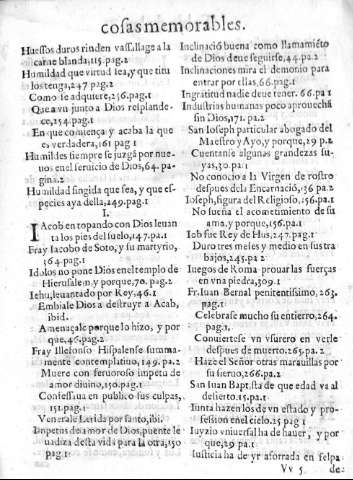 cosas memorables.
Huessos duros rinden vassallage a la
carne blanda, 115. pag. 1
Humildad que virtud sea, y que titu
los tenga, 247 pag. 2
Como se adquiere, 256. pag. 1
Que a vn junto a Dios resplande-
ce, 254. pag. 1
En que comiença y acaba la que
es verdadera, 161 pag 1
Humildes siempre se juzgã por nue-
uos en el seruicio de Dios, 64. pa-
gina. 2
Humildad fingida que sea, y que es-
pecies aya della, 249. pag. 1
I.
Iacob en topando con Dios leuan
ta los pies del suelo, 147. pa. 1
Fray Iacobo de Soto, y su martyrio,
164. pag. 1
Idolos no pone Dios en el templo de
Hierusalem y porque, 70. pag. 2
Iehu, leuantado por Rey, 46. 1
Embiale Dios a destruyr a Acab,
ibid.
Amenaçale porque lo hizo, y por
que, 46. pag. 2
Fray Illefonso Hispalense summa-
mente contemplatiuo, 149. pa. 2
Muere con feruoroso impetu de
amor diuino, 150. pag. 1
Confessaua en publico sus culpas,
151. pag. 1
Venerale Lerida por santo, ibi.
Impetus de amor de Dios, puente le
uadiza desta vida para la otra, 150
pag. 1
Inclinació buena como llamamiéto
de Dios deue seguirse, 44. pa. 2
Inclinaciones mira el demonio para
entrar por ellas, 66. pag. 1
Ingratitud nadie deue tener. 66. pa 1
Industrias humanas poco aprouechã
sin Dios, 171. pa. 2
San Ioseph particular abogado del
Maestro y Ayo, y porque, 29 p. 2
Cuentanse algunas grandezas su-
yas, 30. pa. 1
No conocio a la Virgen de rostro
despues dela Encarnació, 136 pa 2
Ioseph, figura del Religioso, 156. pa. 1
No sueña el acometimiento de su
ama, y porque, 156. pa. 1
Iob fue Rey de Hus, 247. pag. 1
Duro tres meles y medio en sus tra
bajos, 245. pa. 2
Iuegos de Roma prouar las fuerças
en vna piedra, 309. 1
Fr. Iuan Bernal penitentissimo, 263.
pag. 1
Celebrase mucho su entierro, 264.
pag. 1.
Conuiertese vn vsurero en verle
despues de muerto, 265. pa. 2
Haze el Señor otras marauillas por
su sieruo, 266. pa. 2
San Iuan Baptista de que edad va al
desierto. 15. pa. 1
Iunta hazen los de vn estado y pro-
fession en el cielo. 25 pag 1
Iuyzio vniuersal ha de hauer, y por
que, 29 pa. 1
Iusticia ha de yr aforrada en felpa
Vv 5 de